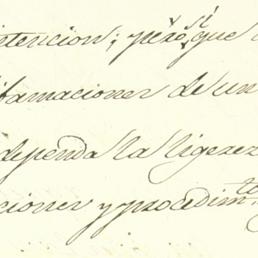 si
ntencion; pero que
formaciones de un
dependa la ligerez
ciones y procedim.to